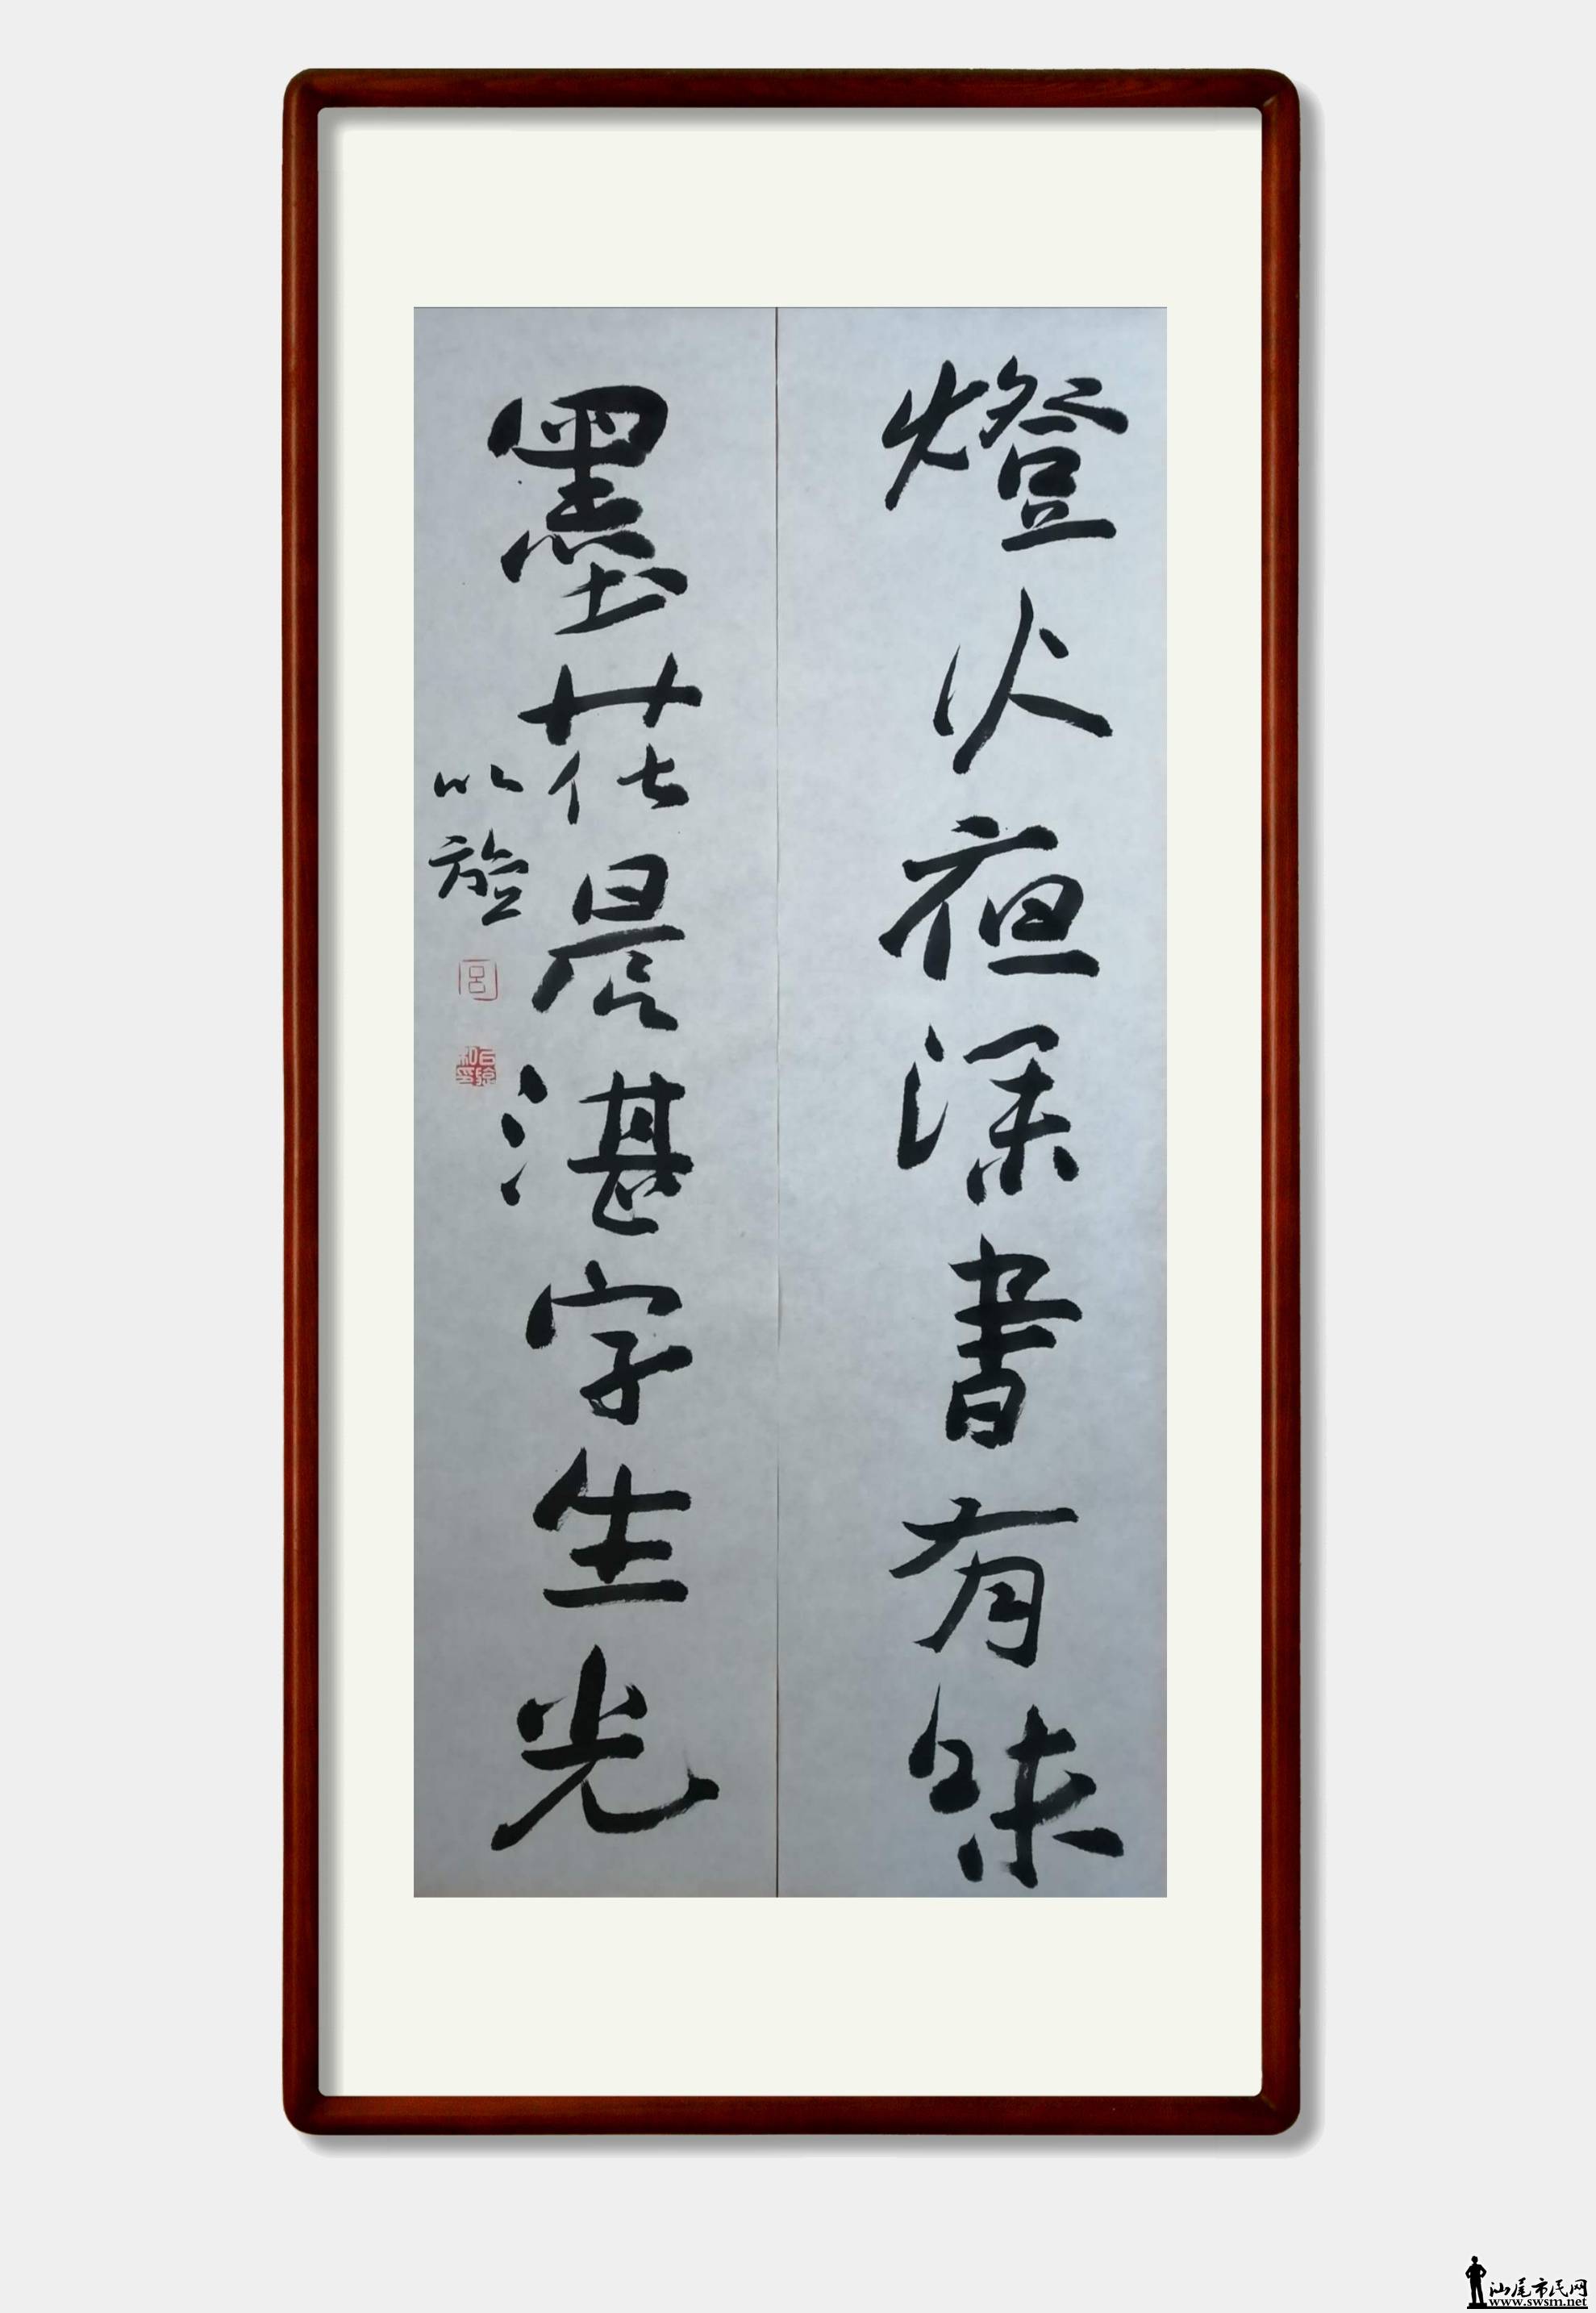 燈火夜深書有味
墨花晨湛字生光
汕尾市民网
www.swsm.net